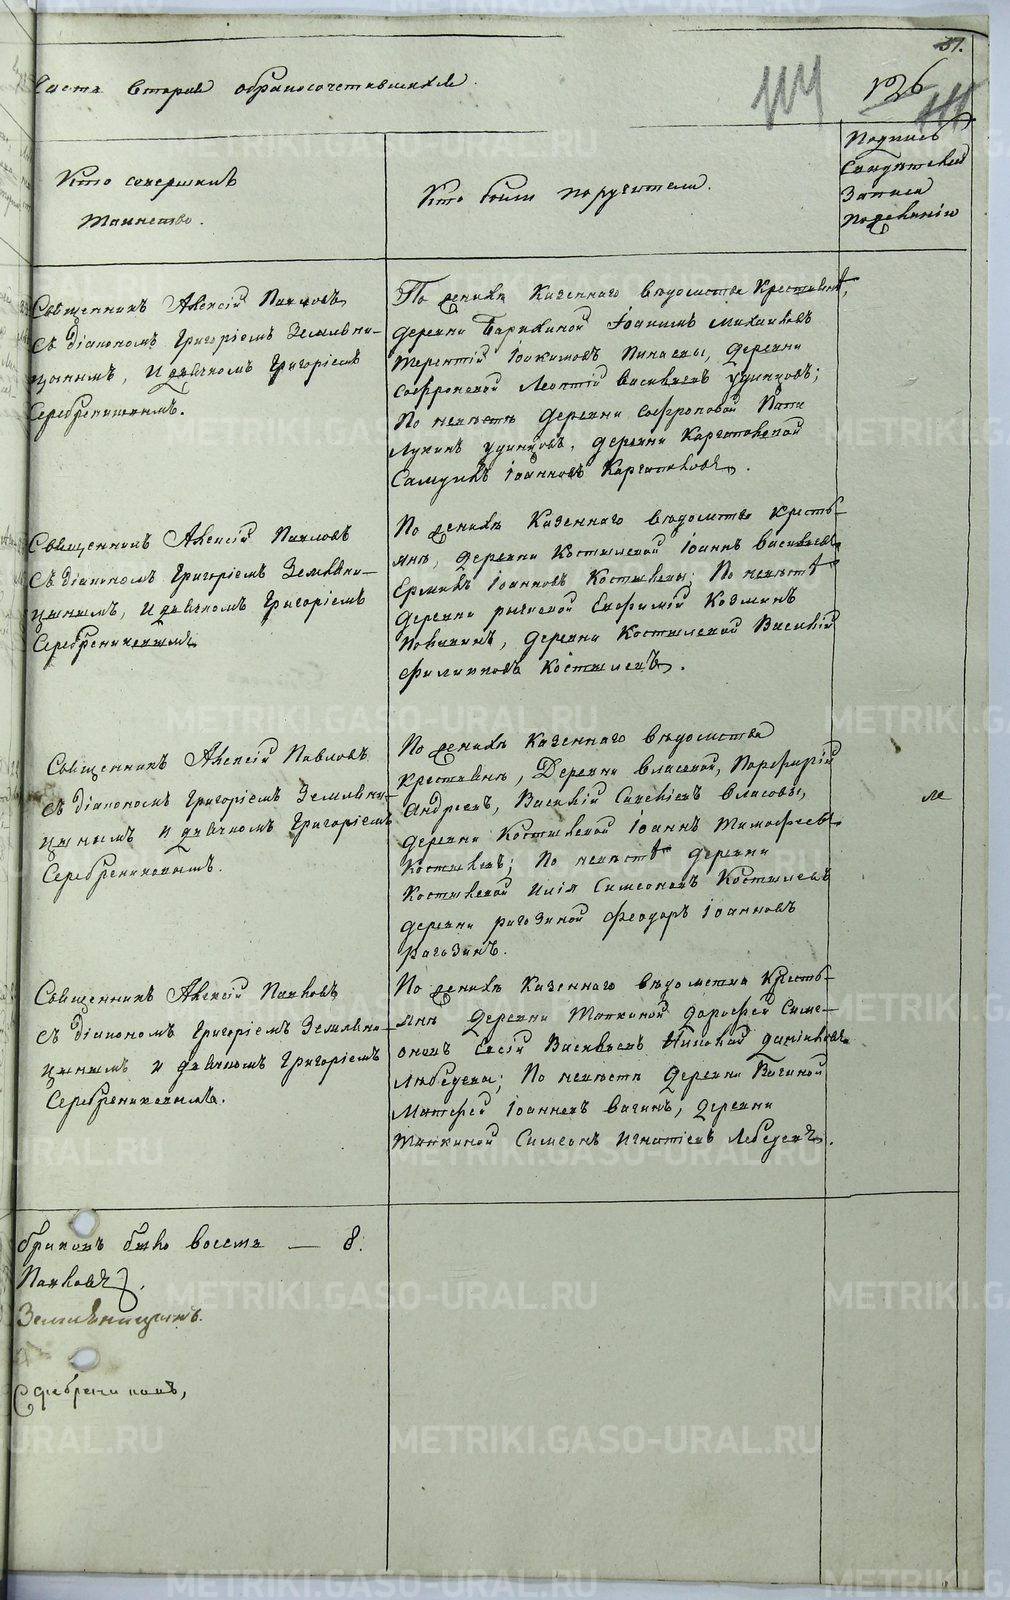 51.
Часть вторая о бракосочетавшихся.
114
126
Кто совершалъ
таинство.
Кто были поручители.
Подпись
свидѣтелей
записи
по желанію
Священникъ Алексій Павловъ
съ діакономъ Григоріемъ Земляни-
цынымъ, и дьячкомъ Григоріемъ
Серебрениковымъ.
По женихѣ казеннаго вѣдомства крестьянѣ,
деревни Іоакимъ Михаиловъ
Терентій Іоакимовъ Пинаевы, деревни
Софроновой Леонтій Васильевъ Удинцовъ;
По невѣстѣ деревни Софроновой
Лукинъ Удинцовъ, деревни Каргаполовой
Самуилъ Іоанновъ Каргаполовъ.
Священникъ Алексій Павловъ
съ діакономъ Григоріемъ Земляни-
цынымъ, и дьячкомъ Григоріемъ
Серебрениковымъ
По женихѣ казеннаго вѣдомства кресть-
янѣ, деревни Костылевой Іоаннъ Васильевъ
Ермилъ Іоанновъ Костылевы; По невѣстѣ
деревни Рычковой Евфимій Козминъ
деревни Костылевой Василій
Филипповъ Костылевъ.
Священникъ Алексій Павловъ
съ діакономъ Григоріемъ Земляни-
цынымъ и дьячкомъ Григоріемъ
Серебрениковымъ.
По женихѣ казеннаго вѣдомства
крестьянѣ, деревни Власовой, Порфирій
Андреевъ, Василій Савельевъ Власовы,
деревни Костылевой Іоаннъ Тимофеевъ
Костылевъ; По невѣстѣ деревни
Костылевой Илія Симеоновъ Костылевъ
деревни Рагозиной Феодоръ Іоанновъ
Рагозинъ.
Священникъ Алексій Павловъ
съ діакономъ Григоріемъ Земляни-
цынымъ и дьячкомъ Григоріемъ
Серебрениковымъ.
По женихѣ казеннаго вѣдомства кресть-
янѣ деревни Тяпкиной Дорофей Симе-
оновъ Васильевъ Даниловъ
Лебедевы; По невѣстѣ деревни Вагиной
Матфей Іоанновъ Вагинъ, деревни
Тяпкиной Симеонъ Игнатіевъ Лебедевъ.
браковъ было восемь — 8.
Павловъ.
Земляницынъ.
Серебрениковъ,
METRIKI.GASO-URAL.RU